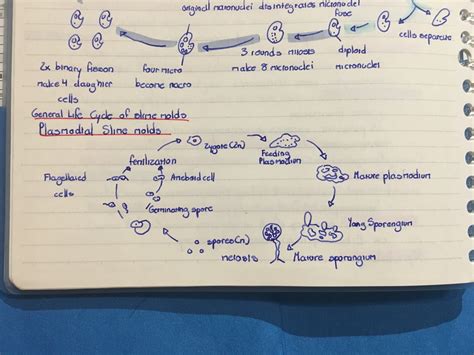 original macronucleus disintegrates micronuclei
fuse
cells separate
2x binary fission
make 4 daughter
cells
four micro
become macro
3 rounds mitosis
make 8 micronuclei
diploid
micronucleus
General Life Cycle of slime molds
Plasmodial Slime molds
zygote (2n)
Feeding
Plasmodium
Mature plasmodium
Yong Sporangium
Mature sporangium
meiosis
spores(n)
Germinating spore
Flagellated
cells
Ameboid cell
fertilization